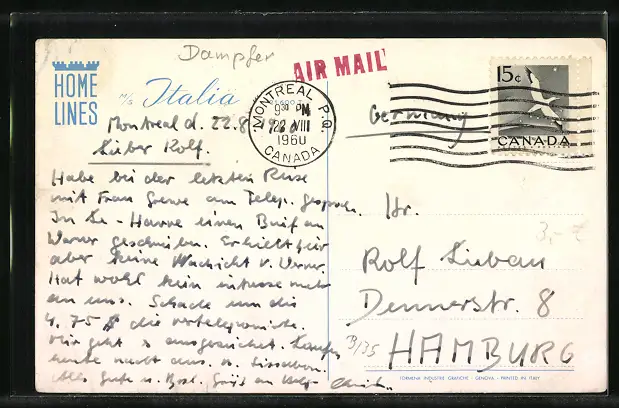 Dampfer
AIR MAIL
HOME
LINES
M/S Italia
MONTREAL P.Q.
9 30 PM
22 VIII
1960
CANADA
15¢
CANADA
Germany
Montreal d. 22.8.
Lieber Rolf.
Habe bei der letzten Reise
mit Frau Grewe am Telep. gesprochen.
In Le-Havre einen Brief an
Werner geschrieben. Erhielt
aber keine Nachricht v. Werner.
Hat wohl kein interesse mehr
an uns. Schade um die
4,75 $ die
Mir geht es ausgezeichnet. Laufen
heute nacht aus. n. Lissabon.
Alles Gute u. Best. Grüß an
Hr.
3,-
Rolf Lieban
Dennerstr. 8
3/135
HAMBURG
GENOVA - PRINTED IN ITALY